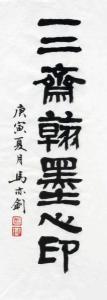 一三齋翰墨心印
庚寅夏月馬亦釗